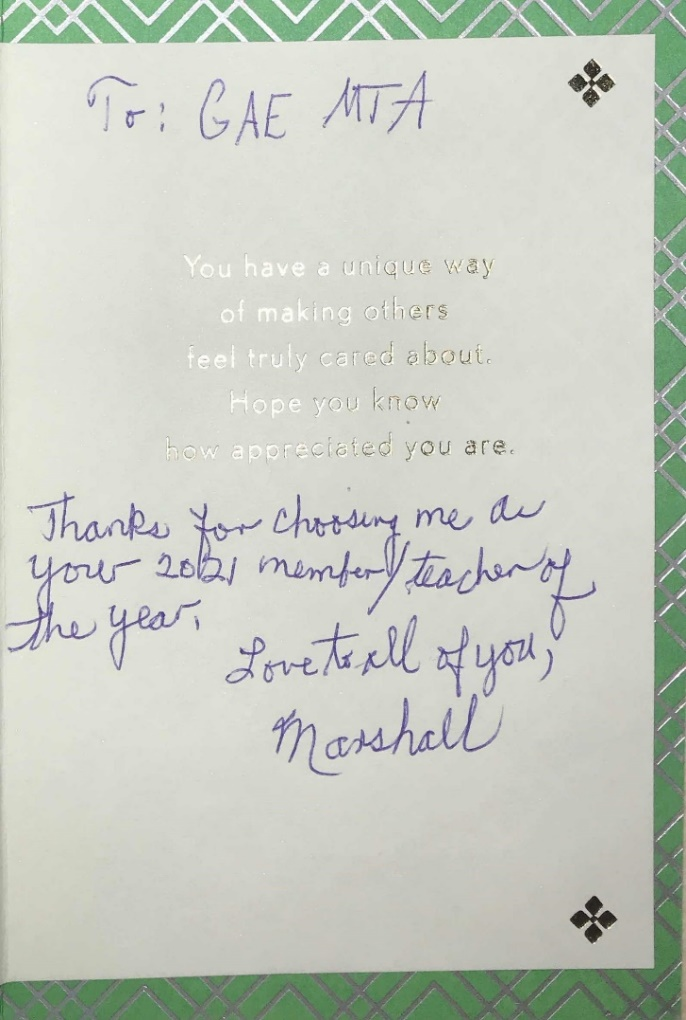 To: GAE MTA
You have a unique way
of making others
feel truly cared about.
Hope you know
how appreciated you are.
Thanks for choosing me as
your 2021 member/teacher of
the year.
Love to all of you,
Marshall